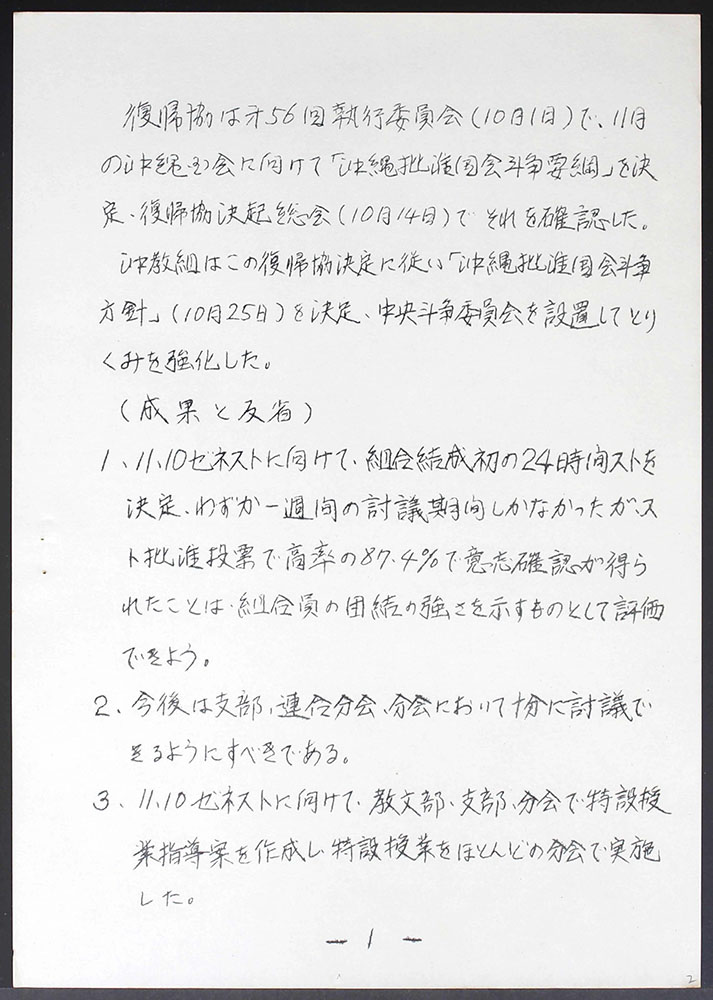 復帰協は才56回執行委員会(10月1日)で、11月
の沖縄国会に向けて「沖縄批准国会斗争要綱」を決
定、復帰協決起総会(10月14日)でそれを確認した。
沖教組はこの復帰協決定に従い「沖縄批准国会斗争
方針」(10月25日)を決定、中央斗争委員会を設置してとり
くみを強化した。
(成果と反省)
1、11.10ゼネストに向けて、組合結成初の24時間ストを
決定、わずか一週間の討議期間しかなかったが、ス
ト批准投票で高率の87.4%で意志確認が得ら
れたことは、組合員の団結の強さを示すものとして評価
できよう。
2、今後は支部、連合分会、分会において十分に討議で
きるようにすべきである。
3、11.10ゼネストに向けて、教文部、支部、分会で特設授
業指導案を作成し、特設授業をほとんどの分会で実施
した。
- 1 -
2